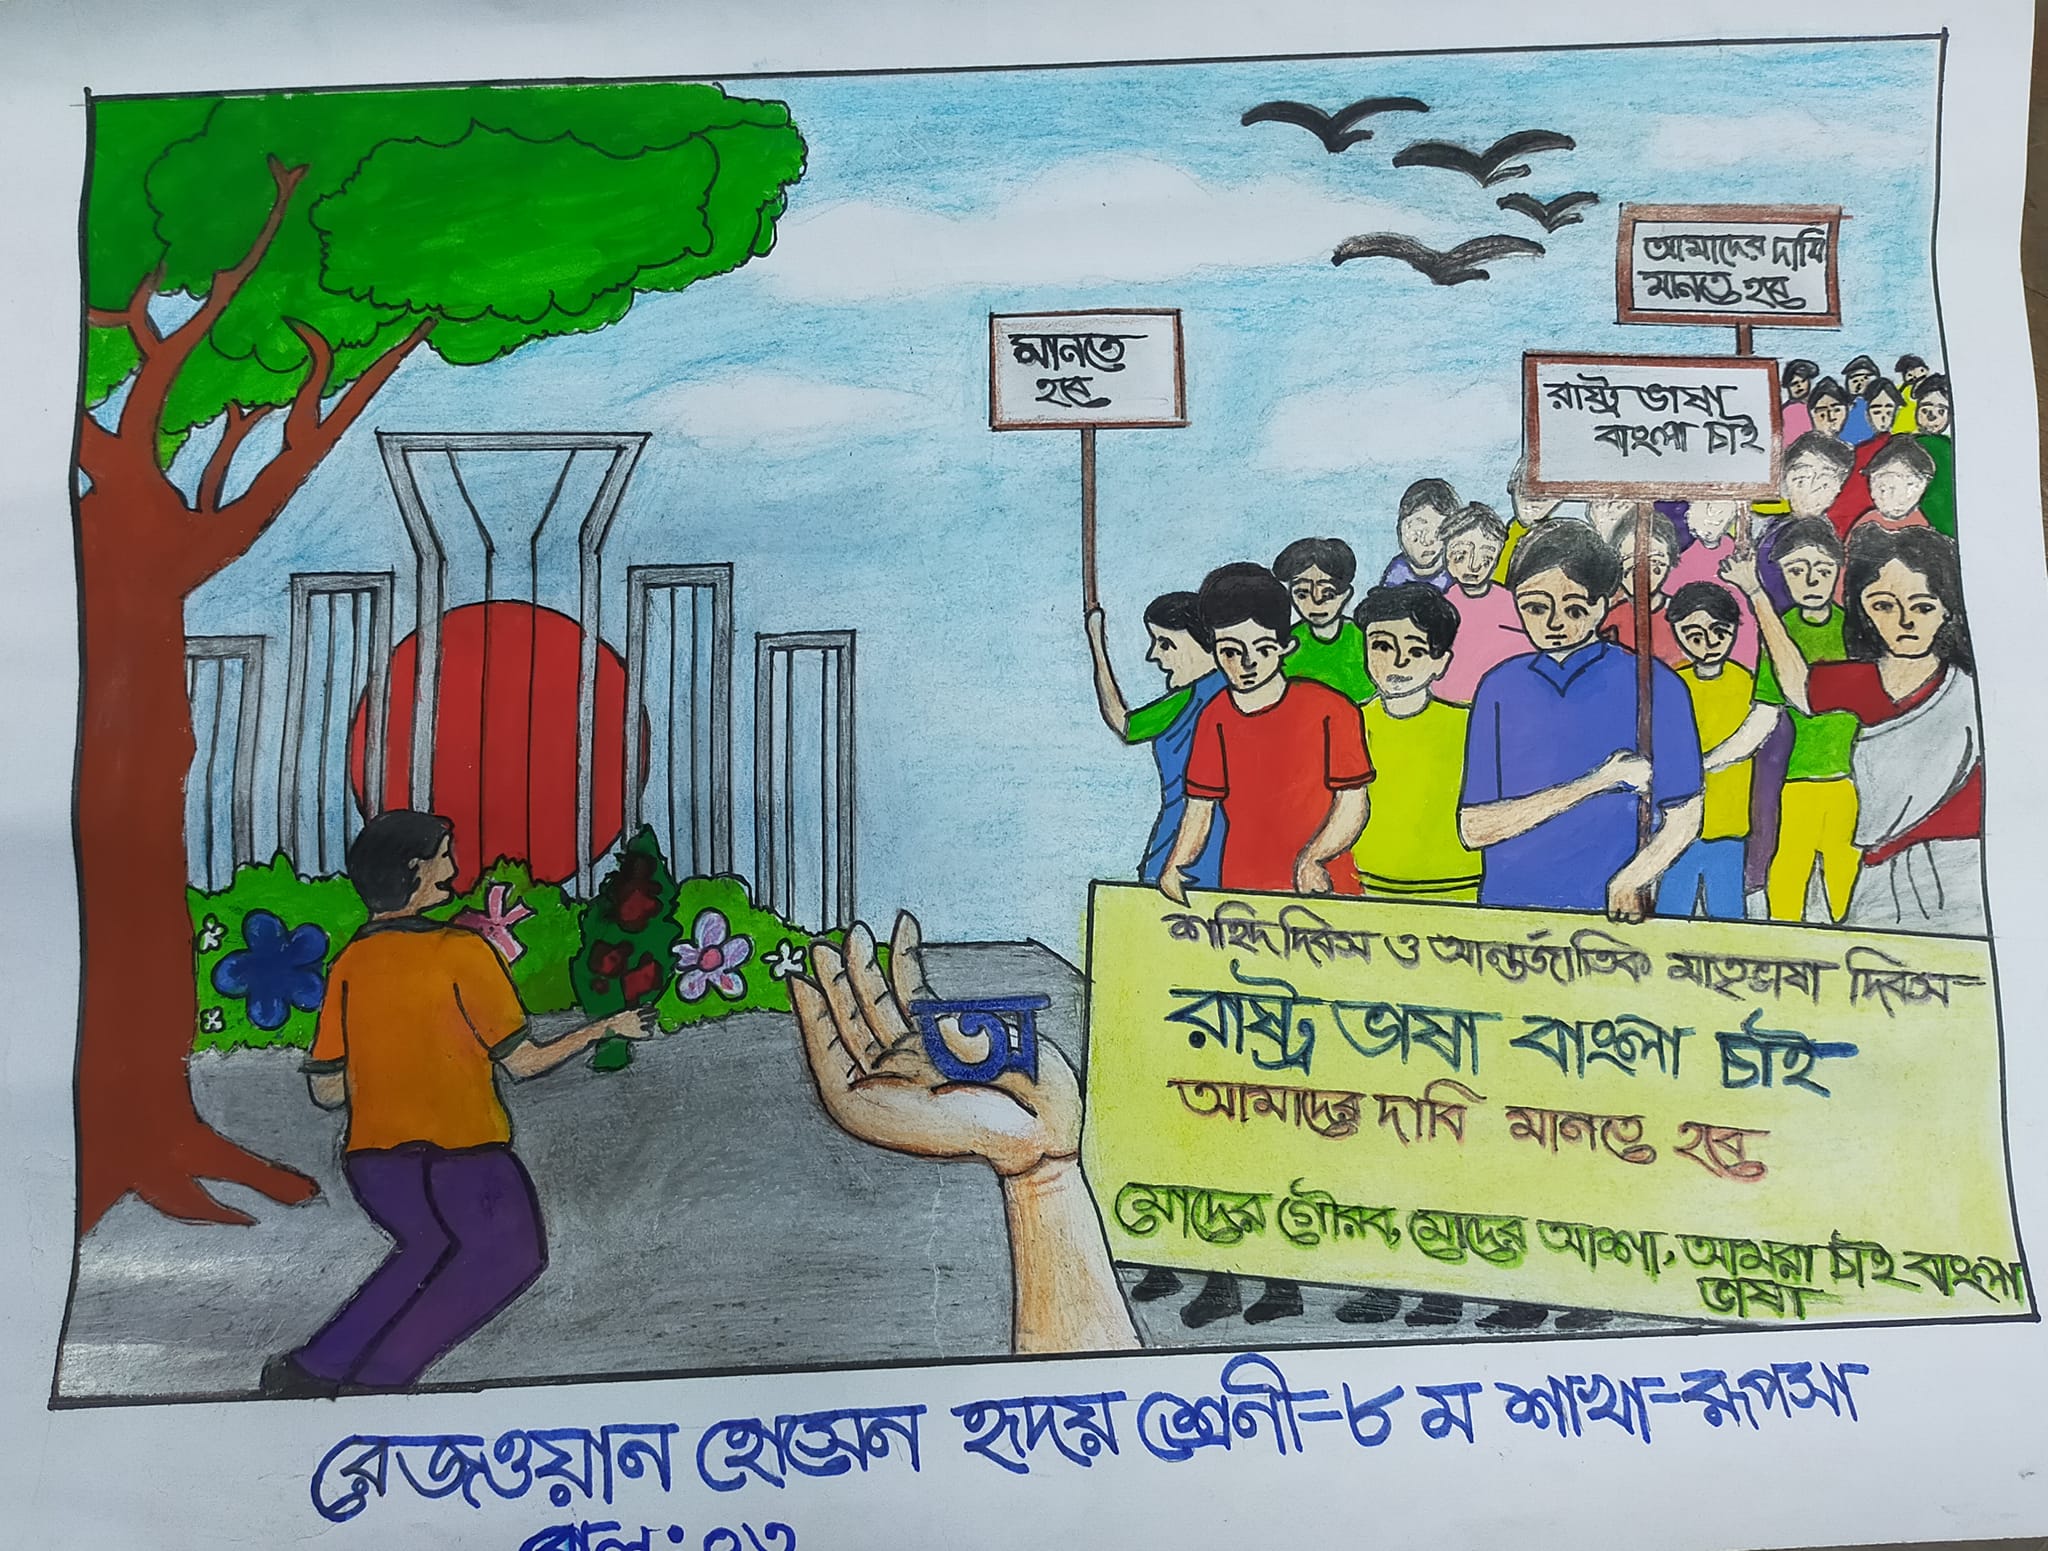 মানতে
হবে
আমাদের দাবি
মানতে হবে
রাষ্ট্র ভাষা
বাংলা চাই
অ
শহিদ দিবস ও আন্তর্জাতিক মাতৃভাষা দিবস
রাষ্ট্র ভাষা বাংলা চাই
আমাদের দাবি মানতে হবে
মোদের গৌরব, মোদের আশা, আমরা চাই বাংলা
ভাষা
রেজওয়ান হোসেন হৃদয় শ্রেণী-৮ ম শাখা-রূপসা
রোল: